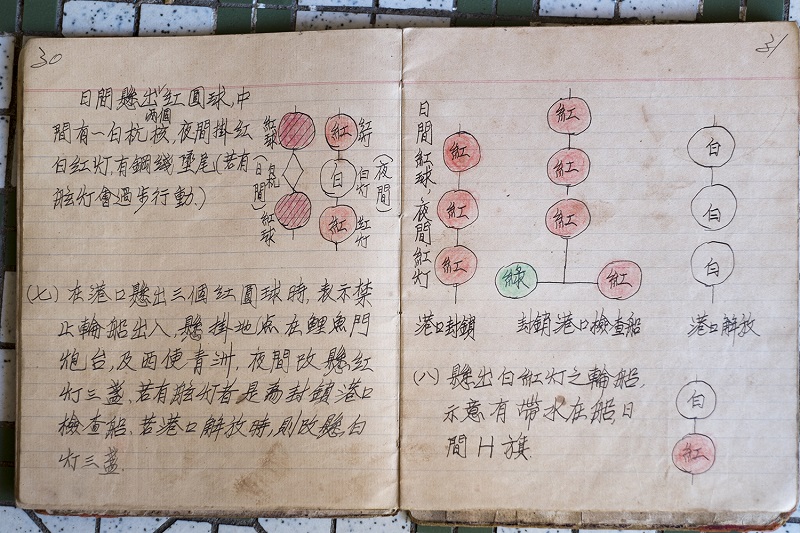 30
日間懸出紅圓球,中
兩個
間有一白杭桉,夜間掛紅
白紅灯,有鋼綫墮尾(若有
舷灯會過步行動.)
紅球
白杭
紅球
(日間)
紅
白
紅
紅灯
白灯
紅灯
(夜間)
(七)在港口懸出三個紅圓球時,表示禁
止輪船出入,懸掛地点在鯉魚門
炮台,及西便青洲,夜間改懸紅
灯三盞,若有舷灯者是為封鎖港口
檢查船.若港口解放時,則改懸白
灯三盞.
31
日間紅球,夜間紅灯
紅
紅
紅
港口封鎖
紅
紅
紅
綠 紅
封鎖港口檢查船
白
白
白
港口解放
(八)懸出白紅灯之輪船,
示意有帶水在船,日
間H旗.
白
紅